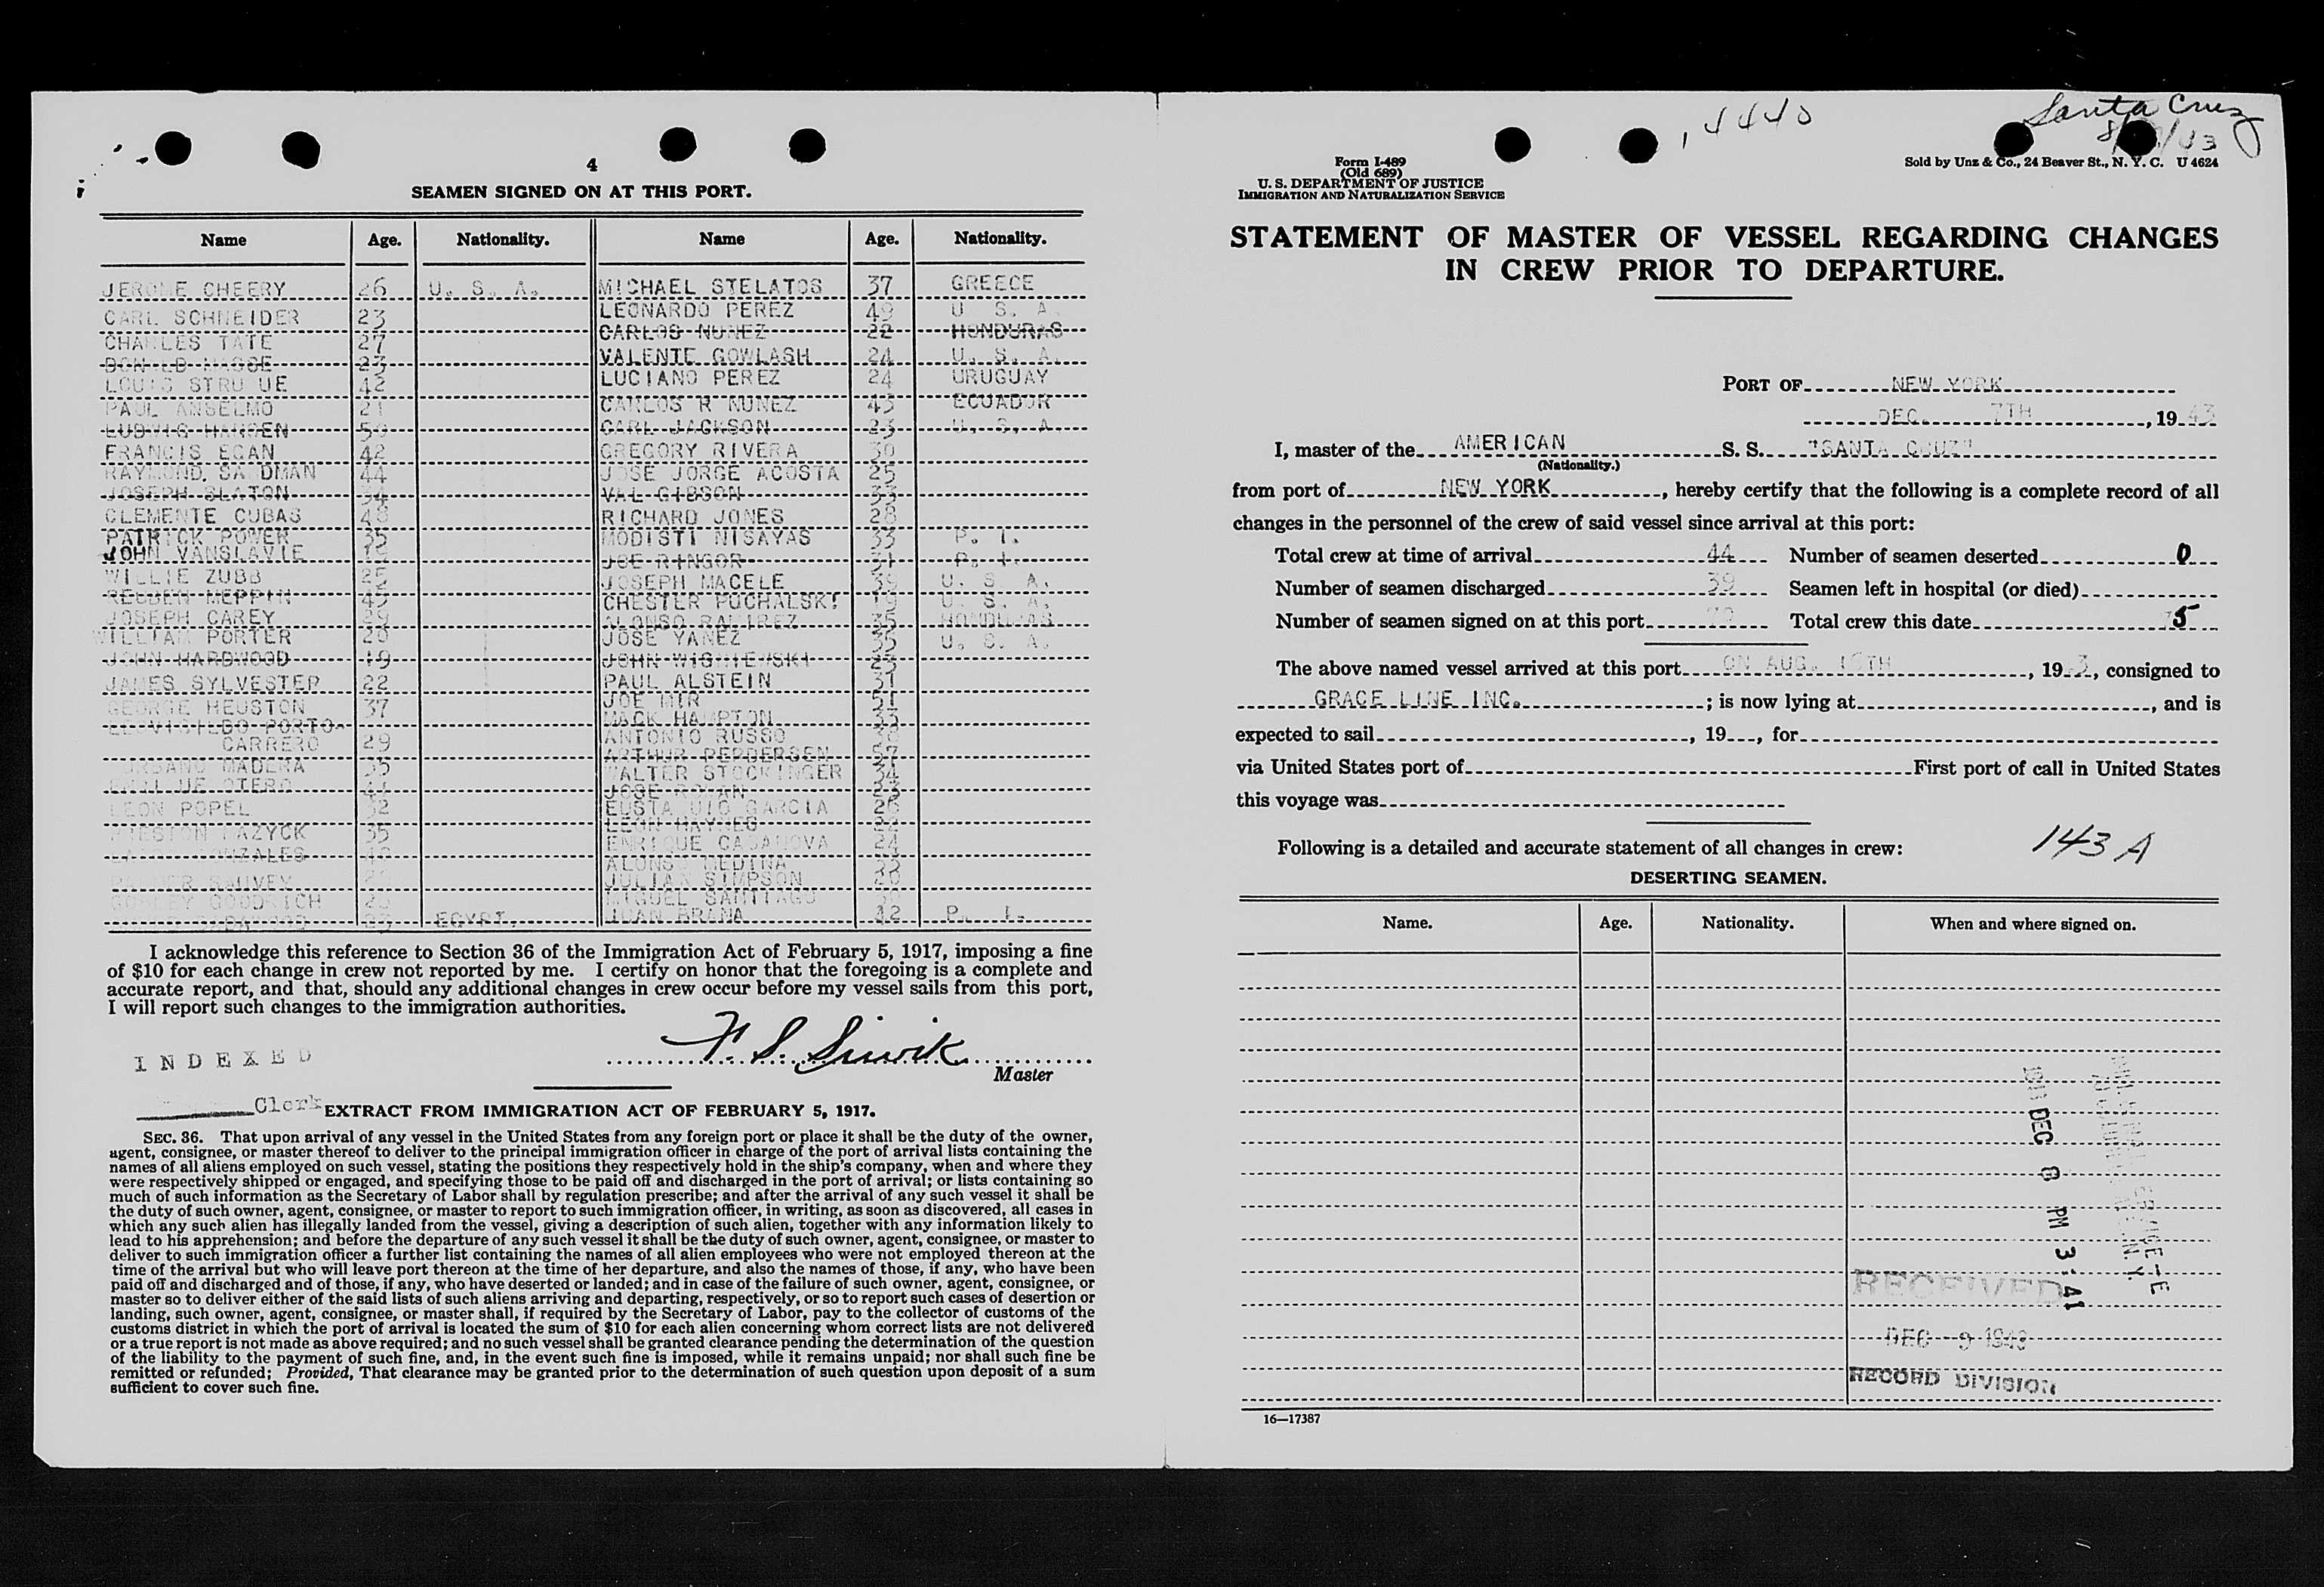 4
SEAMEN SIGNED ON AT THIS PORT.
Name Age. Nationality. Name Age. Nationality.
JEROME CHEERY 26 U. S. A. MICHAEL STELATOS 37 GREECE
CARL SCHNEIDER 23 LEONARDO PEREZ 49 U S. A
CHARLES TATE 27 CARLOS NUNEZ 22 HONDURAS
23 VALENTE GOWLASH 24 U. S. A.
LOUIS 42 LUCIANO PEREZ 24 URUGUAY
PAUL ANSELMO 21 CARLOS R NUNEZ 43 ECUADOR
LUDWIG HANSEN 50 CARL JACKSON 23 U. S. A.
FRANCIS EGAN 42 GREGORY RIVERA 30
RAYMOND. 44 JOSE JORGE ACOSTA 25
JOSEPH SLATON 34 VAL GIBSON 33
CLEMENTE CUBAS 48 RICHARD JONES 28
PATRICK POWER 35 MODISTI NISAYAS 33 P. I.
JOHN VANSLAVIE JOE RINGOR 31 P. I.
WILLIE ZUBB 25 JOSEPH MACELE 39 U. S A.
REUBEN MEPPIN 45 CHESTER PUCHALSKI 19 U. S. A.
JOSEPH CAREY 29 ALONSO RAMIREZ 35 HONDURAS
WILLIAM PORTER 20 JOSE YANEZ 35 U. S. A.
JOHN HARDWOOD 19 JOHN 23
JAMES SYLVESTER 22 PAUL ALSTEIN 31
GEORGE HEUSTON 37 JOE MIR 51
PORTO- MACK HAMPTON 33
CARRERO 29 ANTONIO RUSSO
ARTHUR PEPDERSEN 57
MADERA 35 WALTER STOCKINGER 34
OTERO JOSE 23
LEON POPEL 32 GARCIA 26
MAZYCK 35 LEON HAYNES 22
GONZALES ENRIQUE CASANOVA 24
ALONSO MEDINA 33
JULIAN SIMPSON 28
GOODRICH MIGUEL SANTIAGO
23 EGYPT. JUAN BRANA 42 P. I.
I acknowledge this reference to Section 36 of the Immigration Act of February 5, 1917, imposing a fine
of $10 for each change in crew not reported by me. I certify on honor that the foregoing is a complete and
accurate report, and that, should any additional changes in crew occur before my vessel sails from this port,
I will report such changes to the immigration authorities.
INDEXED
Master
Clerk
EXTRACT FROM IMMIGRATION ACT OF FEBRUARY 5, 1917.
SEC. 36. That upon arrival of any vessel in the United States from any foreign port or place it shall be the duty of the owner,
agent, consignee, or master thereof to deliver to the principal immigration officer in charge of the port of arrival lists containing the
names of all aliens employed on such vessel, stating the positions they respectively hold in the ship's company, when and where they
were respectively shipped or engaged, and specifying those to be paid off and discharged in the port of arrival; or lists containing so
much of such information as the Secretary of Labor shall by regulation prescribe; and after the arrival of any such vessel it shall be
the duty of such owner, agent, consignee, or master to report to such immigration officer, in writing, as soon as discovered, all cases in
which any such alien has illegally landed from the vessel, giving a description of such alien, together with any information likely to
lead to his apprehension; and before the departure of any such vessel it shall be the duty of such owner, agent, consignee, or master to
deliver to such immigration officer a further list containing the names of all alien employees who were not employed thereon at the
time of the arrival but who will leave port thereon at the time of her departure, and also the names of those, if any, who have been
paid off and discharged and of those, if any, who have deserted or landed; and in case of the failure of such owner, agent, consignee, or
master so to deliver either of the said lists of such aliens arriving and departing, respectively, or so to report such cases of desertion or
landing, such owner, agent, consignee, or master shall, if required by the Secretary of Labor, pay to the collector of customs of the
customs district in which the port of arrival is located the sum of $10 for each alien concerning whom correct lists are not delivered
or a true report is not made as above required; and no such vessel shall be granted clearance pending the determination of the question
of the liability to the payment of such fine, and, in the event such fine is imposed, while it remains unpaid; nor shall such fine be
remitted or refunded; Provided, That clearance may be granted prior to the determination of such question upon deposit of a sum
sufficient to cover such fine.
4440
Santa Cruz
Form I-489
(Old 689)
U. S. DEPARTMENT OF JUSTICE
IMMIGRATION AND NATURALIZATION SERVICE
Sold by Unz & Co., 24 Beaver St., N. Y. C. U 4624
STATEMENT OF MASTER OF VESSEL REGARDING CHANGES
IN CREW PRIOR TO DEPARTURE.
PORT OF NEW YORK
DEC. 7TH, 1943
I, master of the AMERICAN S. S. "SANTA CRUZ"
(Nationality.)
from port of NEW YORK, hereby certify that the following is a complete record of all
changes in the personnel of the crew of said vessel since arrival at this port:
Total crew at time of arrival 44 Number of seamen deserted 0
Number of seamen discharged 39 Seamen left in hospital (or died)
Number of seamen signed on at this port Total crew this date 5
The above named vessel arrived at this port ON AUG. TH, 19 3, consigned to
GRACE LINE INC.; is now lying at, and is
expected to sail, 19, for
via United States port of First port of call in United States
this voyage was
Following is a detailed and accurate statement of all changes in crew:
143 A
DESERTING SEAMEN.
Name. Age. Nationality. When and where signed on.
DEC 8 PM 3:41
RECEIVED
DEC 9 1943
RECORD DIVISION
16—17387